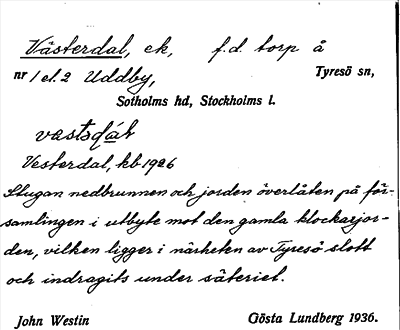 Västerdal, ek, f.d. torp å
nr 1 el. 2 Uddby, Tyresö sn,
Sotholms hd, Stockholms l.
vastɘdát
Vesterdal, kb. 1926
Stugan nedbrunnen och jorden överlåten på för-
samlingen i utbyte mot den gamla klockarjor-
den, vilken ligger i närheten av Tyresö slott
och indragits under säteriet.
John Westin Gösta Lundberg 1936.